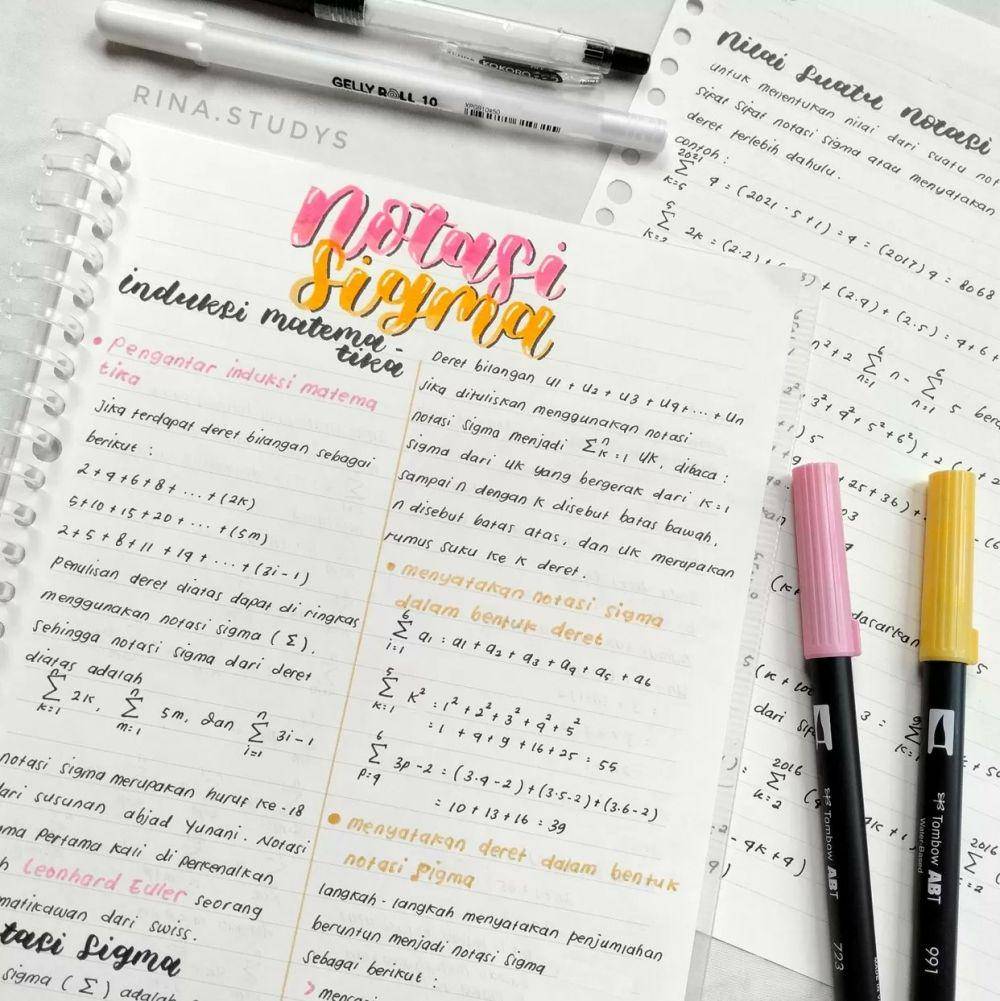 KOKORO
GELLY ROLL 10
XPGB10#50
RINA.STUDYS
Notasi
Sigma
induksi matema-
tika
• Pengantar induksi matema
tika
Jika terdapat deret bilangan sebagai
berikut :
2 + 4 + 6 + 8 + ... + (2k)
5 + 10 + 15 + 20 + ... + (5m)
2 + 5 + 8 + 11 + 14 + ... + (3i - 1)
penulisan deret diatas dapat di ringkas
menggunakan notasi sigma (Σ).
Sehingga notasi sigma dari deret
diatas adalah
n n n
Σ 2k, Σ 5m, dan Σ 3i - 1
k=1 m=1 i=1
notasi sigma merupakan huruf ke-18
dari susunan abjad Yunani. Notasi
pertama kali di perkenalkan
Leonhard Euler seorang
dari swiss.
Sigma
sigma (Σ) adalah
Deret bilangan u1 + u2 + u3 + u4 + ... + un
jika dituliskan menggunakan notasi
notasi sigma menjadi Σ^n_k=1 uk, dibaca :
sigma dari uk yang bergerak dari k=1
sampai n dengan k disebut batas bawah,
n disebut batas atas, dan uk merupakan
rumus suku ke k deret.
• menyatakan notasi sigma
dalam bentuk deret
6
Σ a1 : a1 + a2 + a3 + a4 + a5 + a6
i=1
5
Σ k² : 1² + 2² + 3² + 4² + 5²
k=1
: 1 + 4 + 9 + 16 + 25 : 55
6
Σ 3p - 2 = (3.4 - 2) + (3.5 - 2) + (3.6 - 2)
p=4
= 10 + 13 + 16 : 39
• menyatakan deret dalam bentuk
notasi sigma
langkah - langkah menyatakan penjumlahan
beruntun menjadi notasi sigma
sebagai berikut :
>
Nilai suatu notasi
untuk menentukan nilai dari suatu
sifat sifat notasi sigma atau menyatakan
deret terlebih dahulu.
contoh :
2021
Σ 4 = (2021 - 5 + 1) = 4 = (2017) 4 = 8068
k=5
5
Σ 2k = (2.2) + (2.4) + (2.5) = 4 + 6 +
k=2
n² + 2 Σ^6_n=1 n - Σ^6_n=1 5
2² + 3² + 4² + 5² + 6²) + 2 (1 + 2
+ 1) 5
+ 25 + 36) +
dari
3 =
2016
Σ
k=2
- 4k + 4)
4k + 1)
2016
Σ
i=2
Tombow ABT
723
Tombow ABT
Water-Based
991